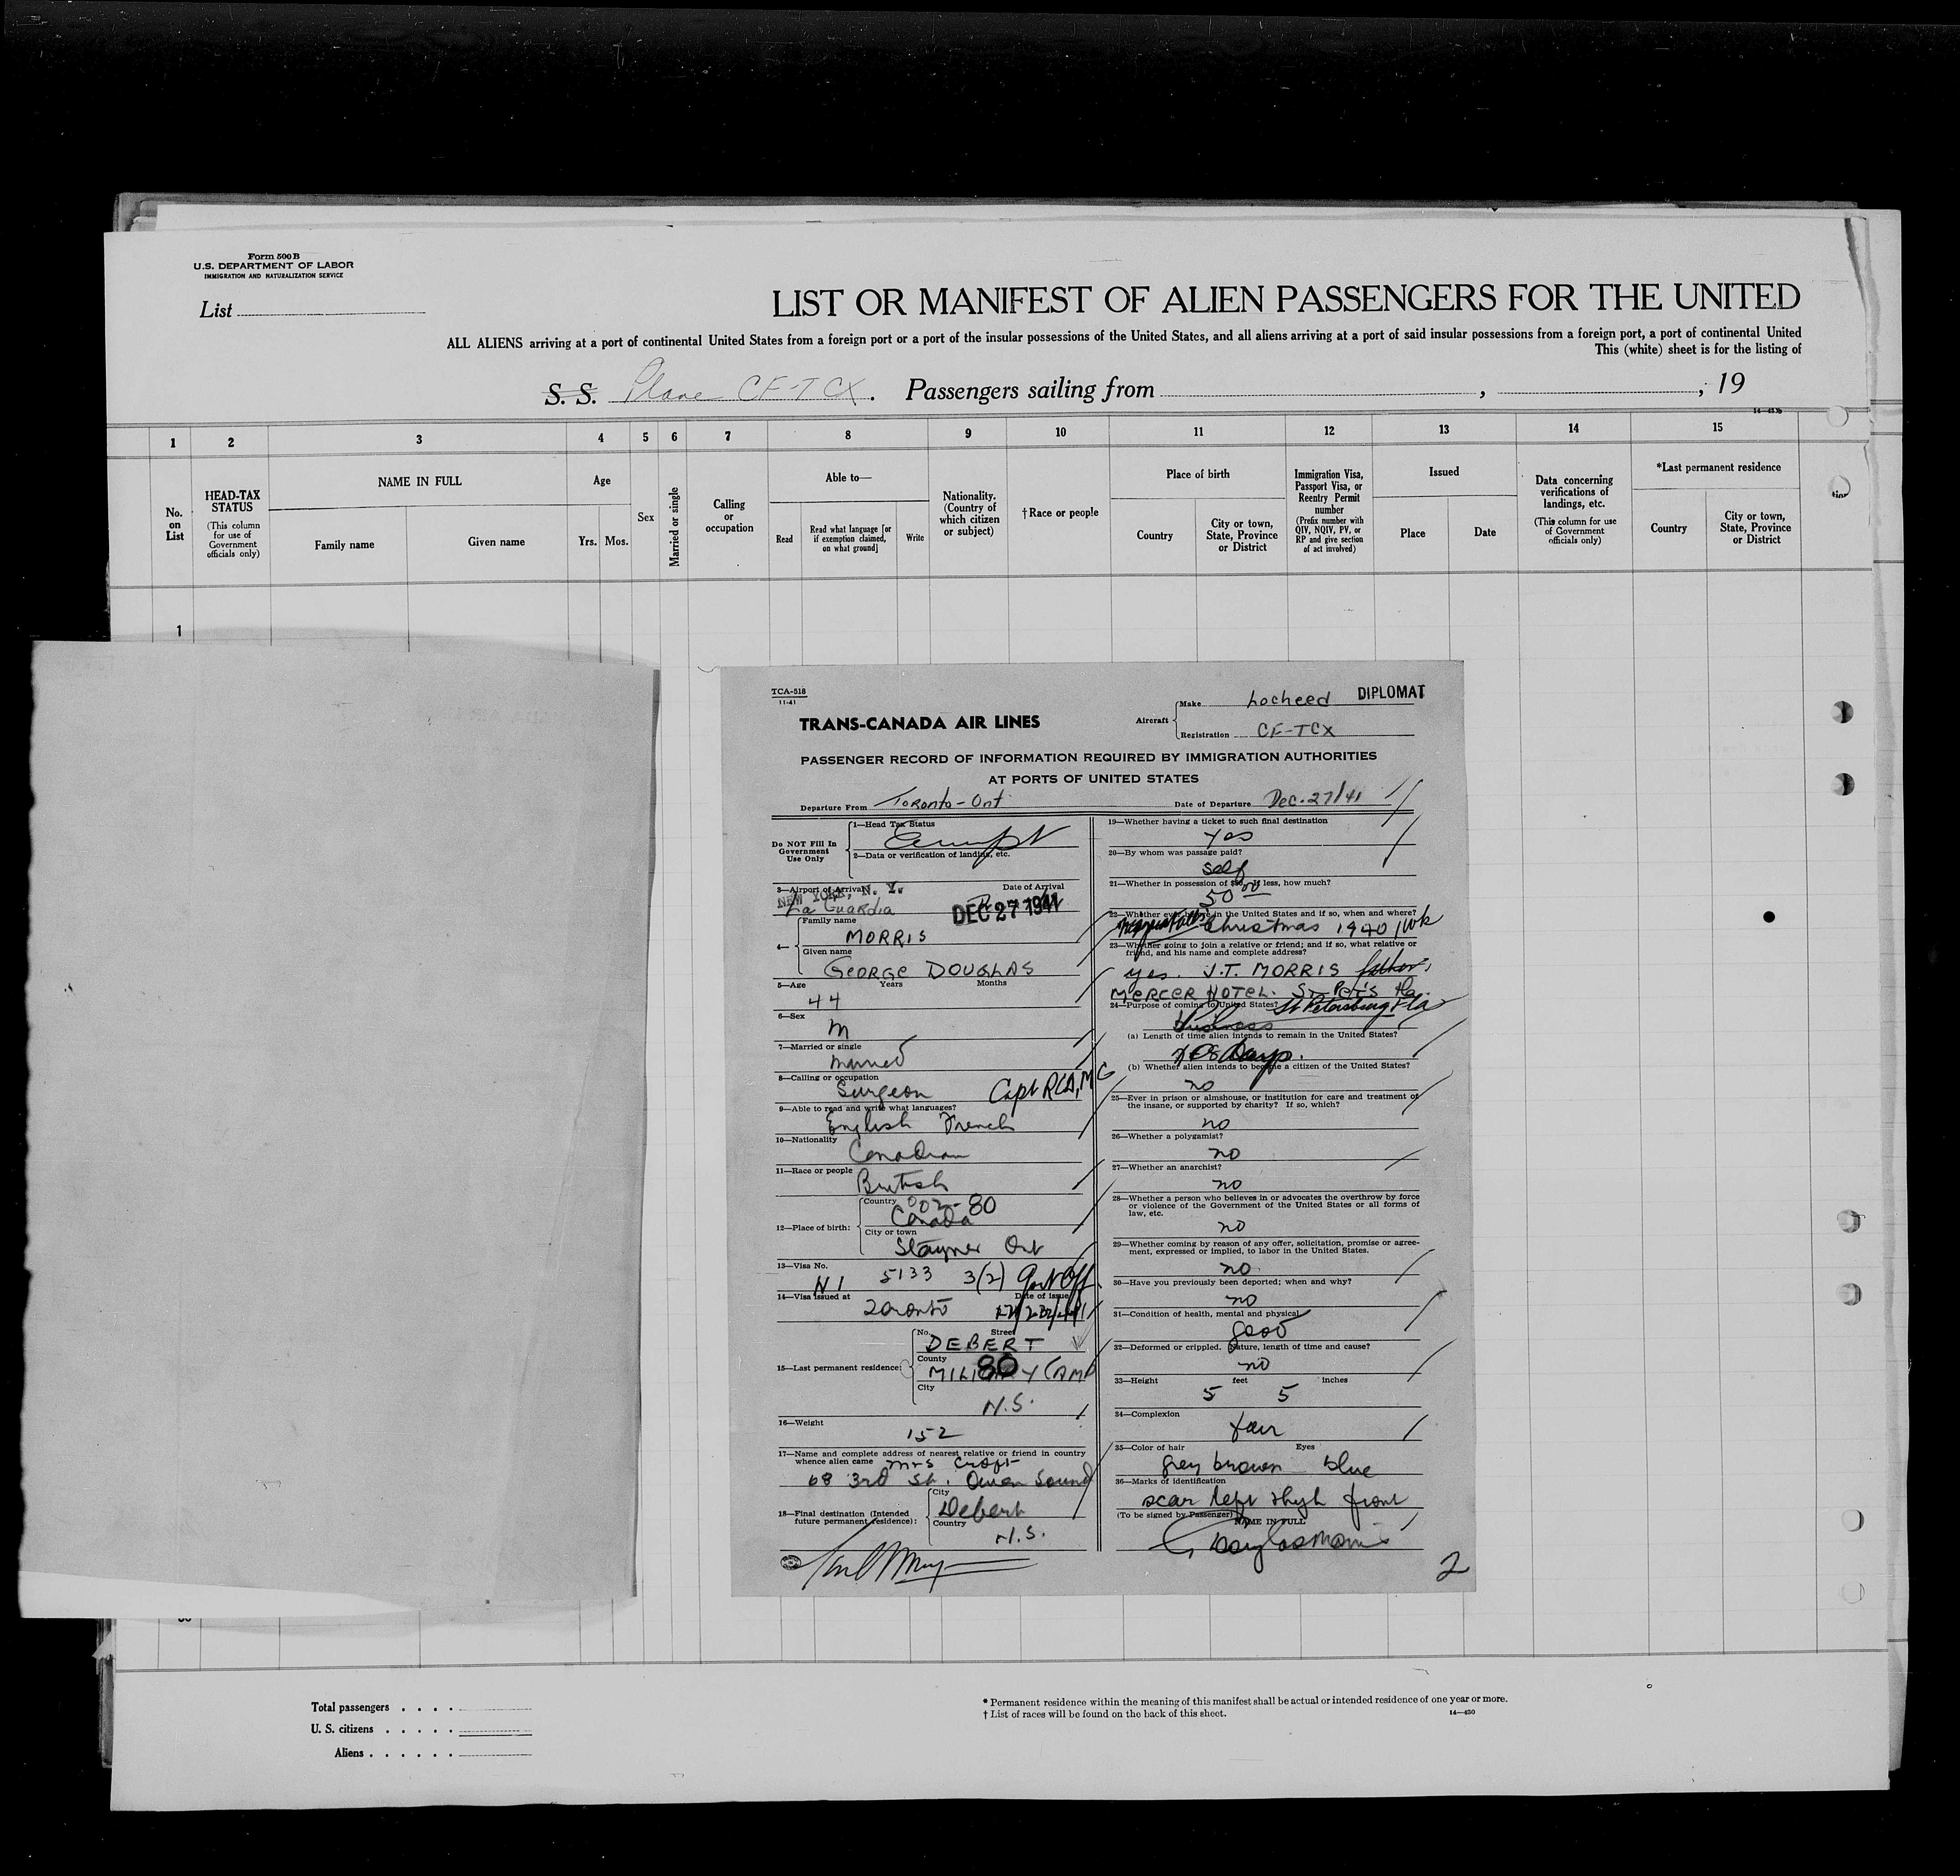 Form 500 B
U.S. DEPARTMENT OF LABOR
IMMIGRATION AND NATURALIZATION SERVICE
List
LIST OR MANIFEST OF ALIEN PASSENGERS FOR THE UNITED
ALL ALIENS arriving at a port of continental United States from a foreign port or a port of the insular possessions of the United States, and all aliens arriving at a port of said insular possessions from a foreign port, a port of continental United
This (white) sheet is for the listing of
S. S. Plane CF-TCX. Passengers sailing from , , 19
1 2 3 4 5 6 7 8 9 10 11 12 13 14 15
No. on List
HEAD-TAX STATUS
(This column for use of Government officials only)
NAME IN FULL
Family name
Given name
Age
Yrs. Mos.
Sex
Married or single
Calling or occupation
Able to—
Read
Read what language [or if exemption claimed, on what ground]
Write
Nationality. (Country of which citizen or subject)
†Race or people
Place of birth
Country
City or town, State, Province or District
Immigration Visa, Passport Visa, or Reentry Permit number
(Prefix number with QIV, NQIV, PV, or RP and give section of act involved)
Issued
Place
Date
Data concerning verifications of landings, etc.
(This column for use of Government officials only)
*Last permanent residence
Country
City or town, State, Province or District
1
TCA-518
11-41
TRANS-CANADA AIR LINES
Aircraft
Make Locheed
DIPLOMAT
Registration CF-TCX
PASSENGER RECORD OF INFORMATION REQUIRED BY IMMIGRATION AUTHORITIES
AT PORTS OF UNITED STATES
Departure From Toronto-Ont
Date of Departure Dec-27/41
Do NOT Fill In Government Use Only
1—Head Tax Status
Exempt
2—Data or verification of landing, etc.
3—Airport of Arrival
NEW YORK, N. Y.
La Guardia
Date of Arrival
DEC 27 1941
4—
Family name
MORRIS
Given name
GEORGE DOUGLAS
5—Age Years Months
44
6—Sex
M
7—Married or single
married
8—Calling or occupation
Surgeon Capt RCA,MC
9—Able to read and write what languages?
English French
10—Nationality
Canadian
11—Race or people
British
12—Place of birth:
Country 002-80
Canada
City or town
Stayner Ont
13—Visa No.
N1 5133 3(2) Govt Off
14—Visa issued at Date of issue
Toronto
15—Last permanent residence:
No. Street
DEBERT
County
MILITARY CAMP
80
City
N.S.
16—Weight
152
17—Name and complete address of nearest relative or friend in country
whence alien came Mrs Croft
68 3rd St. Owen Sound
18—Final destination (Intended future permanent residence):
City
Debert
Country
N.S.
19—Whether having a ticket to such final destination
yes
20—By whom was passage paid?
self
21—Whether in possession of $50, if less, how much?
50 00
22—Whether ever before in the United States and if so, when and where?
Christmas 1940 1wk
23—Whether going to join a relative or friend; and if so, what relative or
friend, and his name and complete address?
yes. J.T. MORRIS father,
MERCER HOTEL. St Pet's Fla.
24—Purpose of coming to United States? St Petersburg Fla
(a) Length of time alien intends to remain in the United States?
Days.
(b) Whether alien intends to become a citizen of the United States?
no
25—Ever in prison or almshouse, or institution for care and treatment of
the insane, or supported by charity? If so, which?
no
26—Whether a polygamist?
no
27—Whether an anarchist?
no
28—Whether a person who believes in or advocates the overthrow by force
or violence of the Government of the United States or all forms of
law, etc.
no
29—Whether coming by reason of any offer, solicitation, promise or agree-
ment, expressed or implied, to labor in the United States.
no
30—Have you previously been deported; when and why?
no
31—Condition of health, mental and physical
good
32—Deformed or crippled. Nature, length of time and cause?
no
33—Height feet inches
5 5
34—Complexion
fair
35—Color of hair Eyes
grey brown blue
36—Marks of identification
scar left thigh front
(To be signed by Passenger) NAME IN FULL
G Douglas Morris
2
Total passengers . . . .
U. S. citizens . . . . .
Aliens . . . . . .
* Permanent residence within the meaning of this manifest shall be actual or intended residence of one year or more.
† List of races will be found on the back of this sheet.
14—430